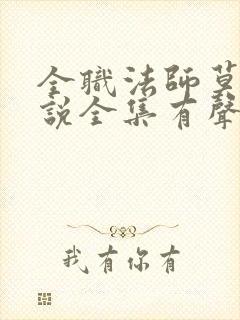 全職法師莫
說全集有聲
我有你有